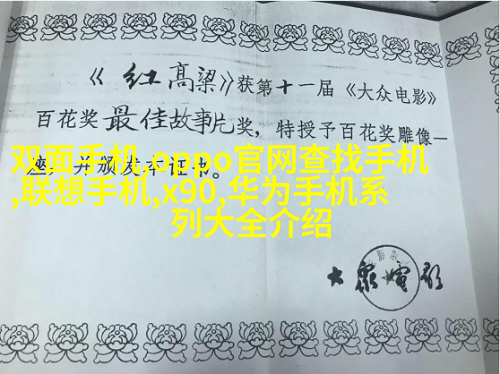 《红高粱》获第十一届《大众电影》
百花奖最佳故事片奖，特授予百花奖雕像一
座，并颁发本证书。
双面手机,oppo官网查找手机
,联想手机,x90,华为手机系
列大全介绍
大眾電影